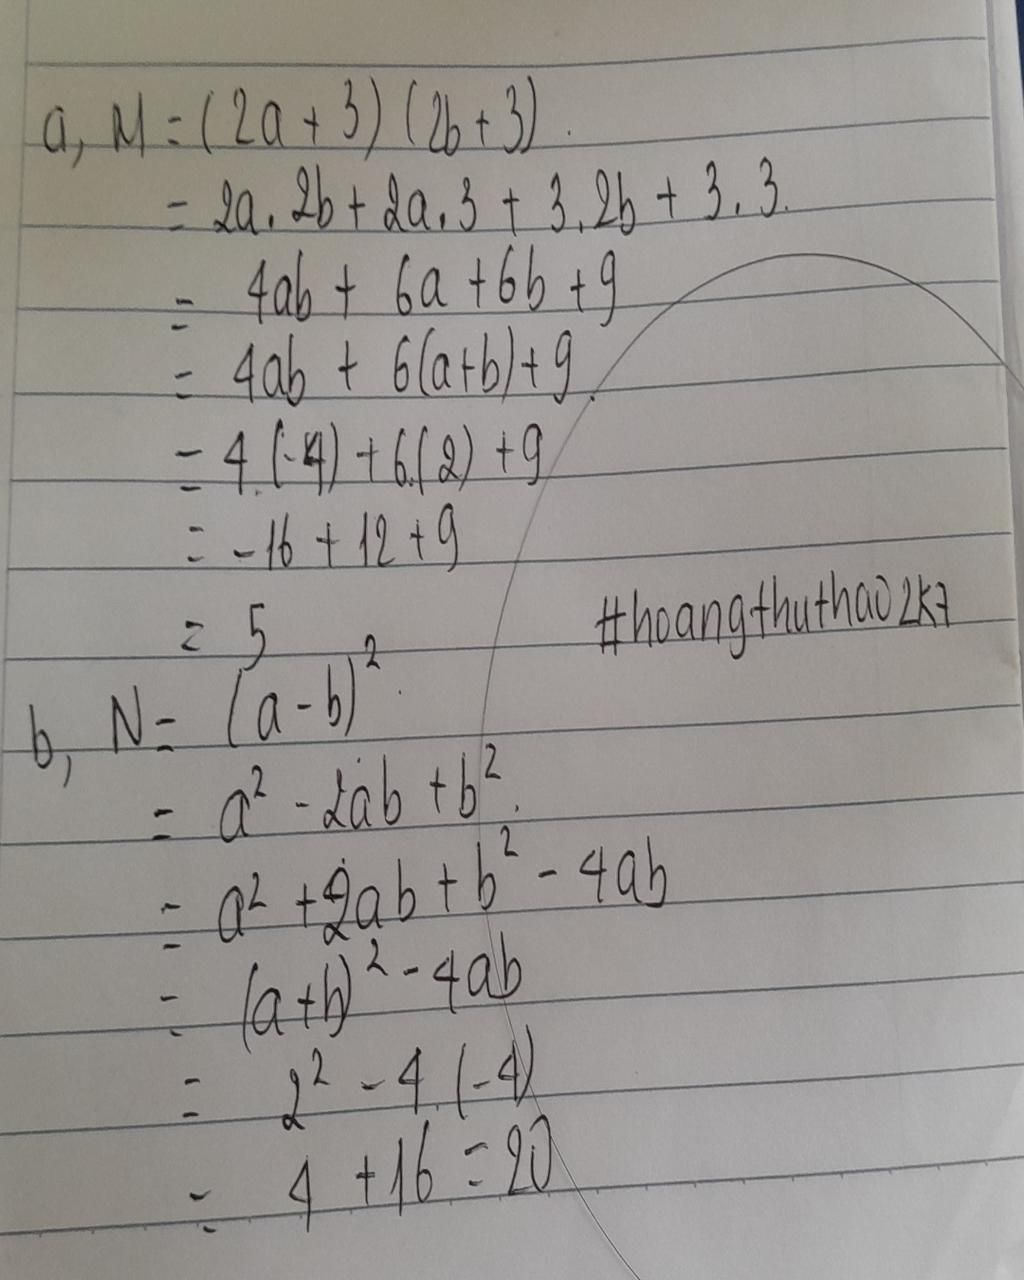 a, M = (2a + 3) (2b + 3).
= 2a. 2b + 2a. 3 + 3. 2b + 3. 3.
= 4ab + 6a + 6b + 9
= 4ab + 6(a+b) + 9
= 4. (-4) + 6.(2) + 9
= -16 + 12 + 9
= 5
#hoangthuthao2k7
b, N = (a - b)².
= a² - 2ab + b².
= a² + 2ab + b² - 4ab
= (a+b)² - 4ab
= 2² - 4. (-4)
= 4 + 16 = 20